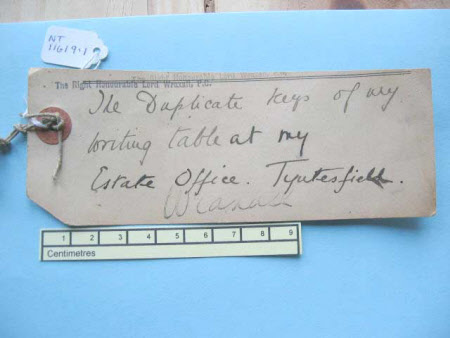 NT
11619.1
The Right Honourable Lord Wraxall, P.C.
The Duplicate keys of my
writing table at my
Estate Office. Tyntesfield.
Wraxall
1 2 3 4 5 6 7 8 9
Centimetres